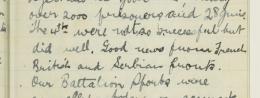 over 2000 prisoners and 28 guns.
The 4th were not so successful but
did well. Good news from French
British and Serbian fronts.
Our Battalion Sports were